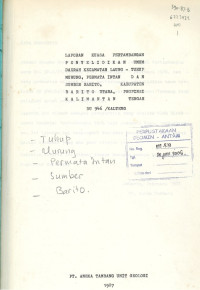 LAPORAN KUASA PERTAMBANGAN
PENYELIDIKAN UMUM
DAERAH KECAMATAN LAUNG - TUHUP
MURUNG, PERMATA INTAN DAN
SUMBER BARITO, KABUPATEN
BARITO UTARA, PROPINSI
KALIMANTAN TENGAH
DU 946 /KALTENG
- Tuhup
- Murung
- Permata Intan
- Sumber
- Barito.
PERPUSTAKAAN
GEOMIN - ANTAM
PT. ANEKA TAMBANG UNIT GEOLOGI
1987